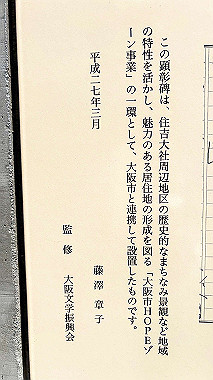 この顕彰碑は、住吉大社周辺地区の歴史的なまちなみ景観など地域
の特性を活かし、魅力のある居住地の形成を図る「大阪市HOPEゾ
ーン事業」の一環として、大阪市と連携して設置したものです。
平成二七年三月
藤澤 章子
監修 大阪文学振興会